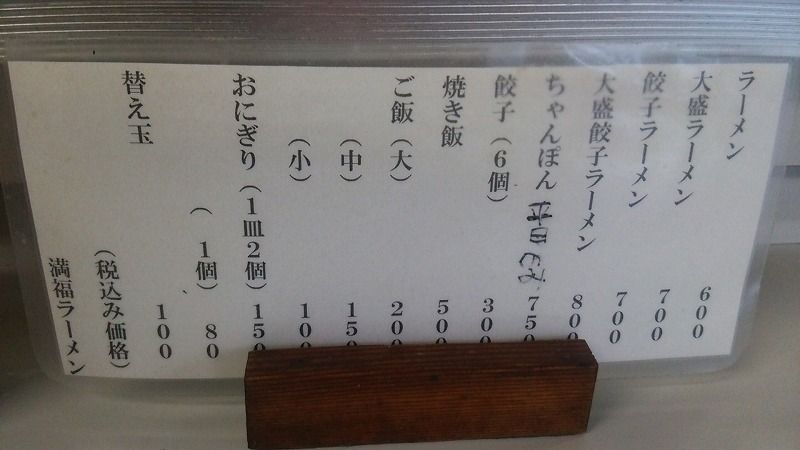 ラーメン 600
大盛ラーメン 700
餃子ラーメン 700
大盛餃子ラーメン 800
ちゃんぽん 平日のみ 750
餃子(6個) 300
焼き飯 500
ご飯(大) 200
(中) 150
(小) 100
おにぎり(1皿2個) 150
( 1個) 80
替え玉 100
(税込み価格)
満福ラーメン